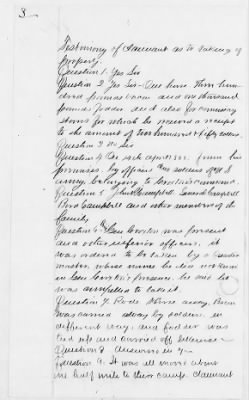 3
Testimony of claimant as to taking of
property.
Question 1. Yes Sir
Question 2 Yes Sir - One horse. Three hun-
dred pounds bacon and one thousand
pounds fodder and also for commissary
stores for which he received a receipt
to the amount of two hundred & fifty dollars.
Question 3 No Sir
Question 4 On 10th April 1865 from his
premises by officers and soldiers of U. S.
army belonging to command
Question 5 John Campbell, Samuel Campbell
Campbell and other members of the
family
Question 6th Gen was present
and other superior officers, it
was ordered to be taken by a Quarter
master, whose name he does not know
in Gen presence he one he
was compelled to take it
Question 7. Rode Horse away, Bacon
was carried away by soldiers in
different ways and fodder was
tied up and carried off likewise
Question 8 Answered in 7
Question 9. It was all moved about
one half mile to their camp. Claimant